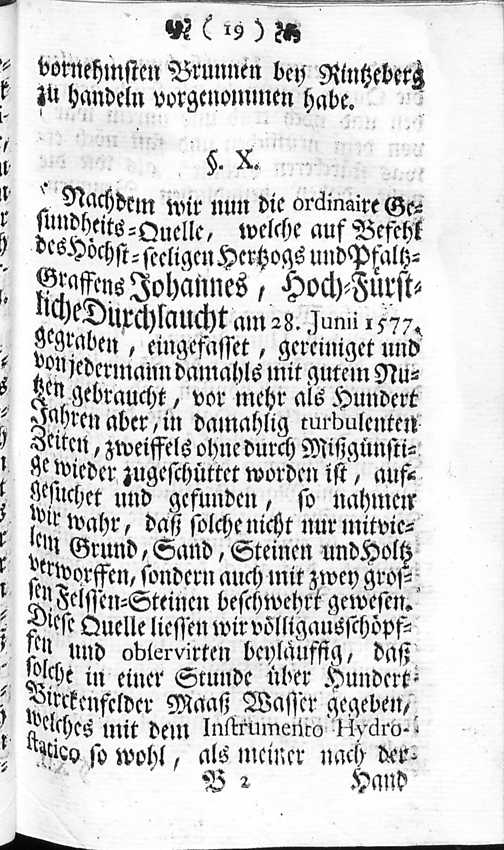 ( 19 )
vornehmsten Brunnen bey Rintzeberg
zu handeln vorgenommen habe.
§. X.
Nachdem wir nun die ordinaire Ge-
sundheits-Quelle, welche auf Befehl
des Höchst-seeligen Hertzogs und Pfaltz-
Graffens Johannes, Hoch-Fürst-
liche Durchlaucht am 28. Junii 1577.
gegraben, eingefasset, gereiniget und
von jedermann damahls mit gutem Nu-
tzen gebraucht, vor mehr als Hundert
Jahren aber, in damahlig turbulenten
Zeiten, zweiffels ohne durch Mißgünsti-
ge wieder zugeschüttet worden ist, auf-
gesuchet und gefunden, so nahmen
wir wahr, daß solche nicht nur mit vie-
lem Grund, Sand, Steinen und Holtz
verworffen, sondern auch mit zwey gros-
sen Felssen-Steinen beschwehrt gewesen.
Diese Quelle liessen wir völlig ausschöpf-
fen und observirten beyläuffig, daß
solche in einer Stunde über Hundert
Birckenfelder Maaß Wasser gegeben,
welches mit dem Instrumento Hydro-
statico so wohl, als meiner nach der
B 2 Hand